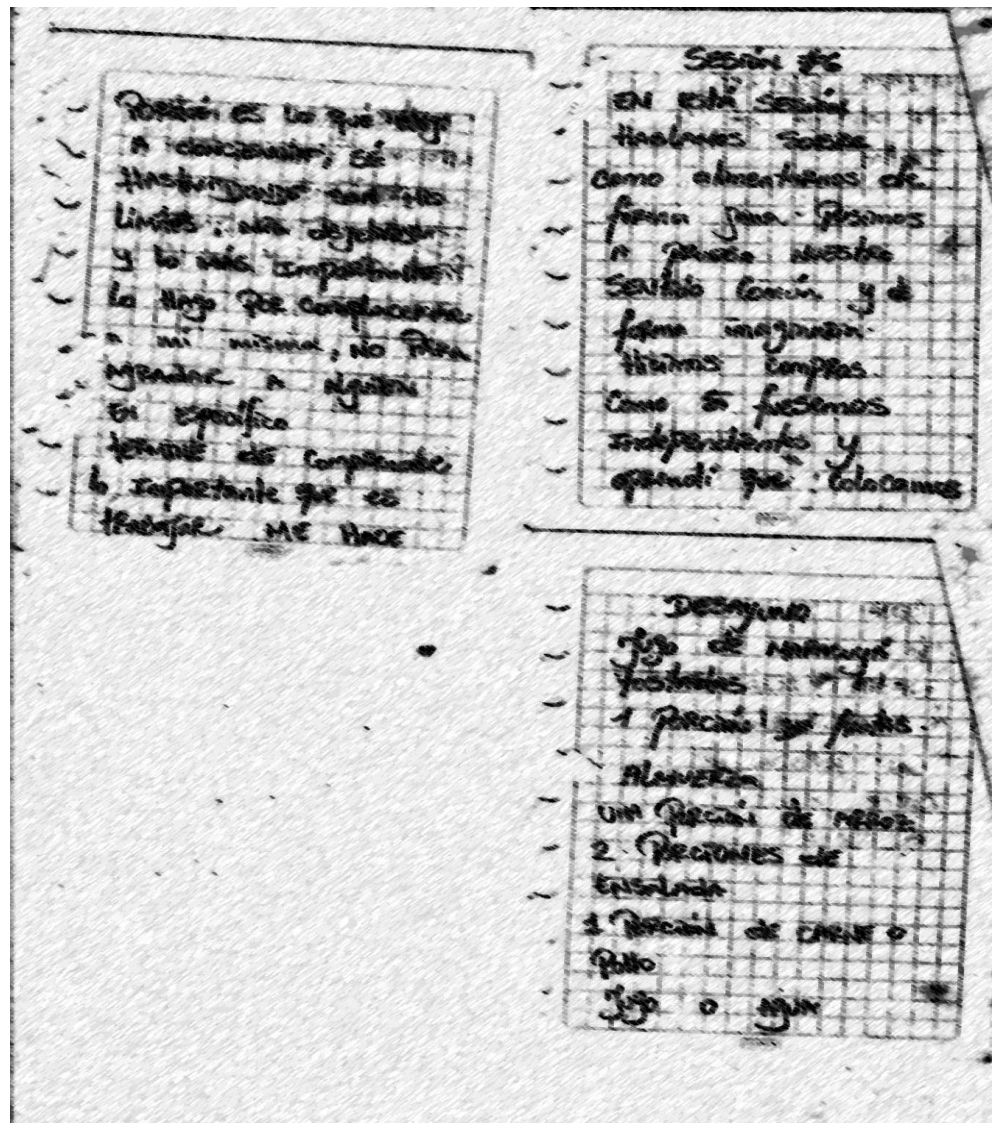 ES LO QUE
A, SÉ
HASTA DONDE SON MIS
LIMITES,
Y lo más IMPORTANTE
lo HAGO POR complacerme
A mí misma, NO PARA
AGRADAR A Alguien
EN ESPECÍFICO
de comprender
lo IMPORTANTE que es
TRABAJAR ME HACE
SESIÓN #6
EN ESTÁ SESIÓN
HABLAMOS SOBRE
como alimentarnos de
forma sana. Pusimos
A PRUEBA NUESTRO
SENTIDO Común y de
forma
HICIMOS COMPRAS
Como SI fuésemos
independientes y
aprendí que colocamos
DESAYUNO
Jugo de MARACUYÁ
TOSTADAS
1 PORCIÓN DE frutas
ALMUERZO
UNA PORCIÓN de ARROZ
2 PORCIONES de
ENSALADA
1 PORCIÓN de CARNE o
Pollo
Jugo o AGUA